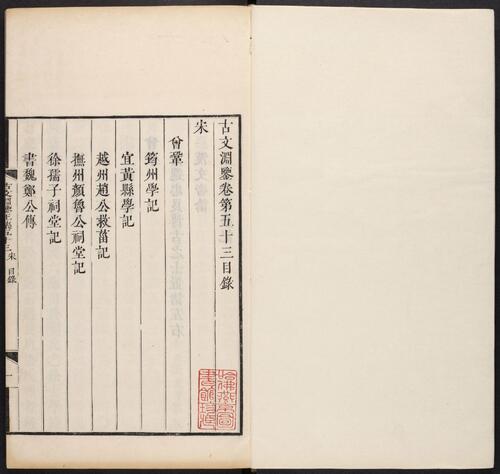 古文淵鑒卷第五十三目錄
宋
曾鞏
筠州學記
宜黃縣學記
越州趙公救菑記
撫州顏魯公祠堂記
徐孺子祠堂記
書魏鄭公傳
宋 目錄
一